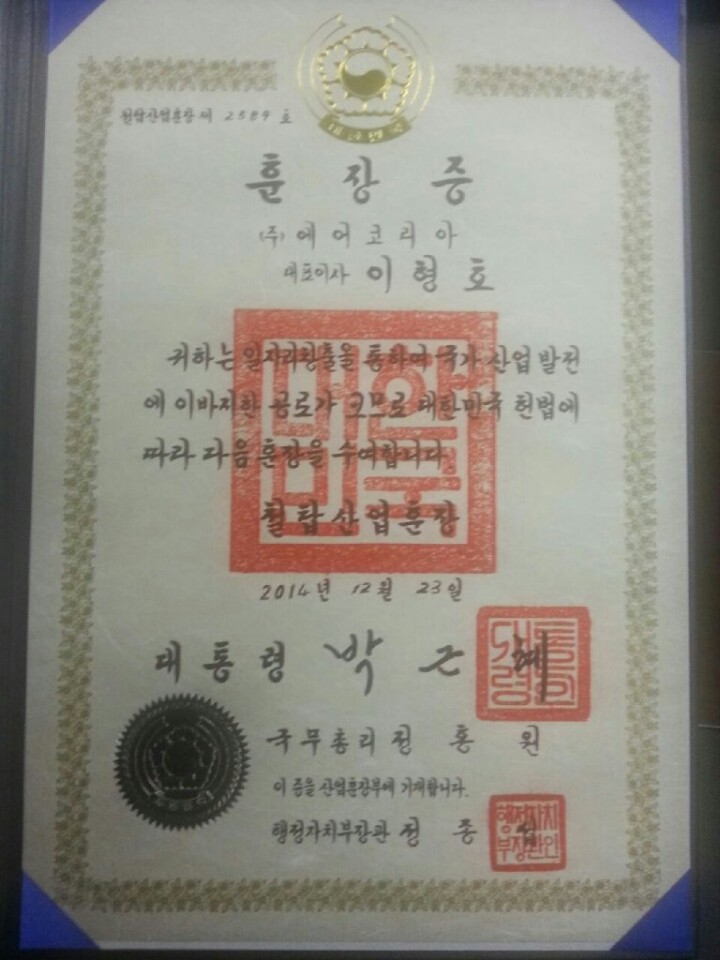 철탑산업훈장 제 2589 호
훈장증
(주)에어코리아
대표이사 이형호
귀하는 일자리창출을 통하여 국가 산업발전
에 이바지한 공로가 크므로 대한민국 헌법에
따라 다음 훈장을 수여합니다.
철탑산업훈장
2014년 12월 23일
대통령 박근혜
국무총리 정홍원
이 증을 산업훈장부에 기재합니다.
행정자치부장관 정종섭